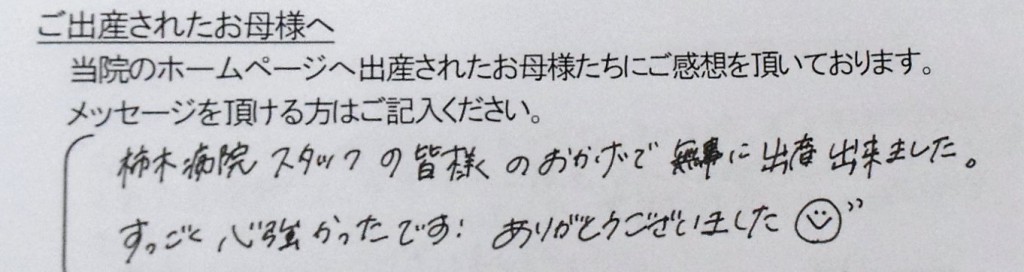 ご出産されたお母様へ
当院のホームページへ出産されたお母様たちにご感想を頂いております。
メッセージを頂ける方はご記入ください。
柿木病院スタッフの皆様のおかげで無事に出産出来ました。
すっごく心強かったです! ありがとうございました☺"